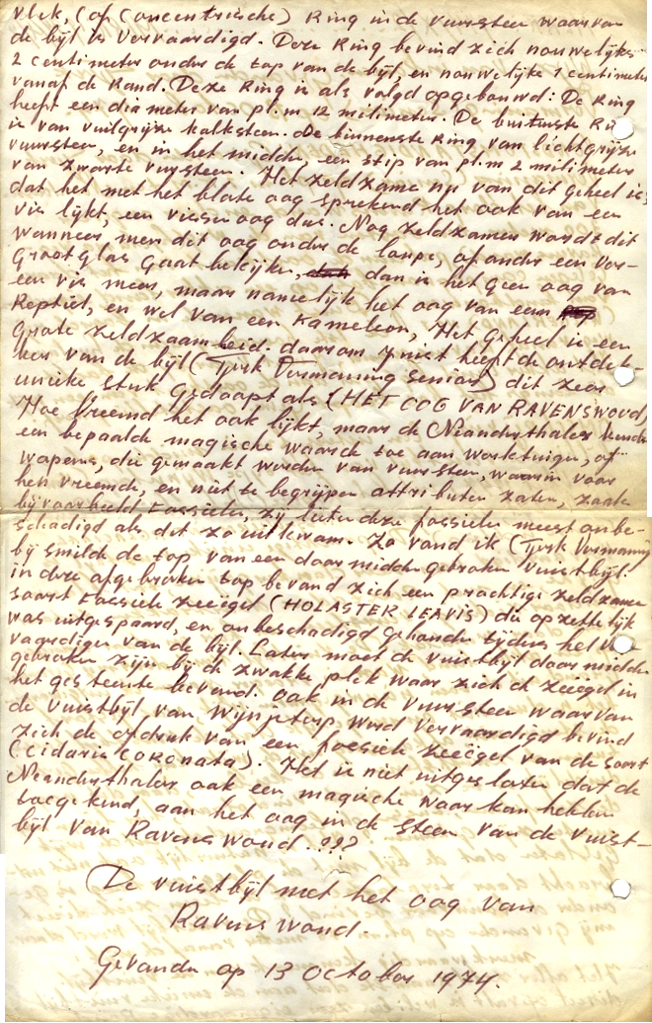 vlek, (of Concentrische) Ring in de vuursteen waarvan
de bijl is vervaardigd. Deze Ring bevind zich nouwelijks
2 centimeter onder de top van de bijl, en nouwelijke 1 centimeter
vanaf de Rand. Deze Ring is als volgd opgebouwd: De Ring
heeft een diameter van pl.m 12 milimeter. De buitenste Ri
is van vuilgrijze kalksteen. de binnenste Ring van lichtgrijze
vuursteen, en in het midden, een stip van pl.m 2 milimeter
van zwarte vuursteen. Het zeldzame nu van dit geheel is,
dat het met het blote oog sprekend het ook van een
vis lijkt, een vissenoog dus. Nog zeldzamer wordt dit
wanneer, men dit oog onder de loupe, of onder een Ver-
grootglas gaat bekijken, dan is het geen oog van
een vis meer, maar namelijk het oog van een
Reptiel, en wel van een Kameleon, Het geheel is een
Grote zeldzaamheid. daarom juist heeft de ontdek-
ker van de bijl (Tjerk Vermaning Senior) dit zeer
unieke stuk gedoopt als (HET OOG VAN RAVENSWOUD)
Hoe vreemd het ook lijkt, maar de Neanderthaler kende
een bepaalde magische waarde toe aan werktuigen, of
wapens, die gemaakt werden van vuursteen, waarin voor
hen vreemde, en niet te begrijpen attributen zaten, zoals
bijvoorbeeld Fossielen, zij lieten deze fossielen meest onbe-
schadigd als dit zo uitkwam. Zo vond ik (Tjerk Vermaning)
bij smilde de top van een door midden gebroken vuistbijl.
in deze afgebroken top bevand zich een prachtige zeldzame
soort Fossiele zeeëgel (HOLASTER LEAVIS) die opzettelijk
was uitgespaard, en onbeschadigd gehouden tijdens het ver
vaardigen van de bijl. Later moet de vuistbijl door midden
gebroken zijn bij de zwakke plek waar zich de zeeëgel in
het gesteente bevond. ook in de vuursteen waarvan
de vuistbijl van Wijnjeterp werd vervaardigd bevind
zich de afdruk van een fossiele zeeëgel van de soort
(Cidaris Coronata). Het is niet uitgesloten dat de
Neanderthaler ook een magische waar kan hebben
toegekend, aan het oog in de steen van de vuist-
bijl van Ravenswoud.???
De vuistbijl met het oog van
Ravenswoud.
Gevonden op 13 October 1974.